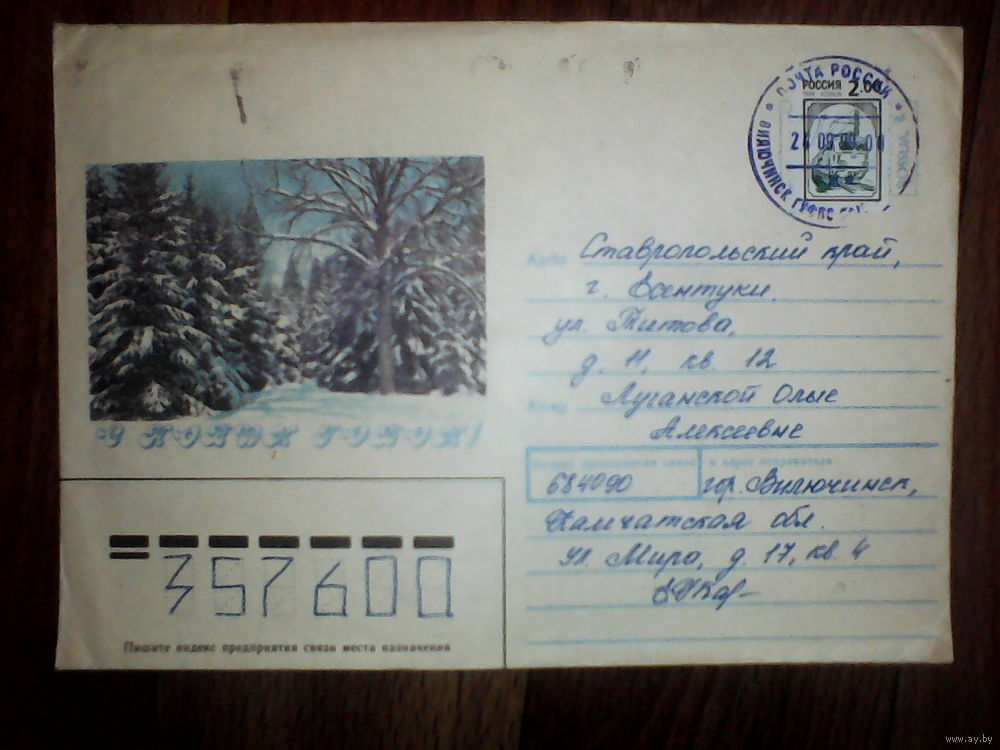 ПОЧТА РОССИИ
РОССИЯ 2.00
24 09
ВИЛЮЧИНСК ГУФПС
Куда Ставропольский край,
г. Ессентуки
ул. Титова,
д. 11, кв. 12
Кому Луганской Ольге
Алексеевне
и адрес отправителя
684090 гор. Вилючинск,
Камчатская обл.
ул. Мира, д. 17, кв. 4
С НОВЫМ ГОДОМ!
357600
Пишите индекс предприятия связи места назначения
www.ay.by